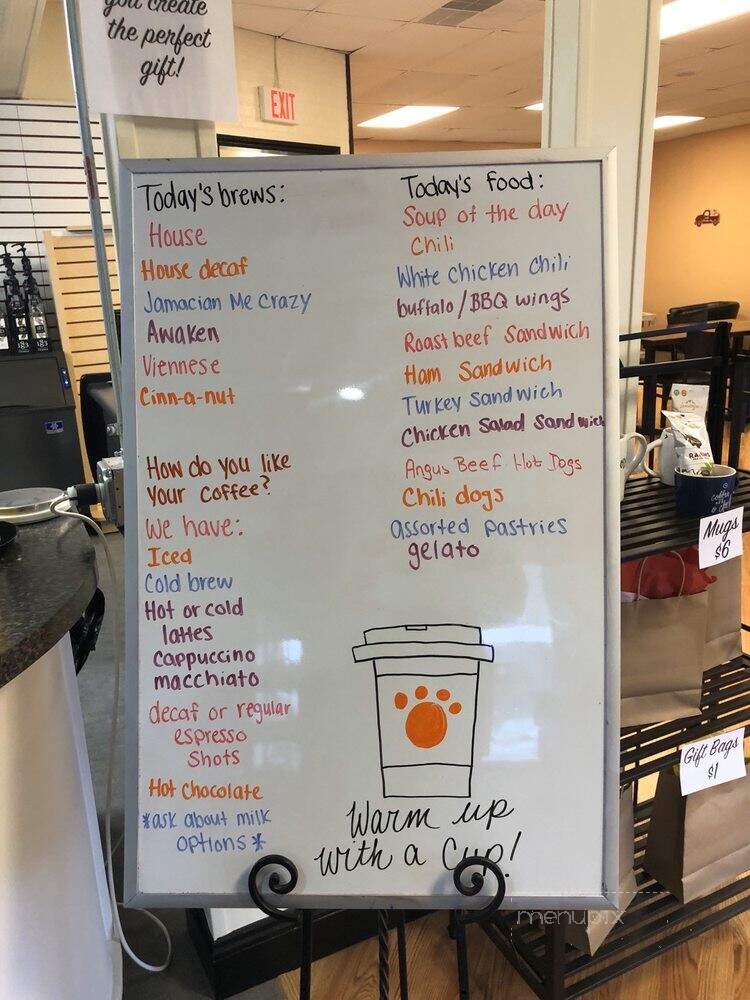 you create
the perfect
gift!
EXIT
Today's brews:
House
House decaf
Jamacian Me Crazy
Awaken
Viennese
Cinn-a-nut
How do you like
your coffee?
We have:
Iced
Cold brew
Hot or cold
lattes
Cappuccino
macchiato
decaf or regular
espresso
shots
Hot Chocolate
*ask about milk
options*
Today's food:
Soup of the day
Chili
White Chicken Chili
buffalo/BBQ wings
Roast beef Sandwich
Ham Sandwich
Turkey Sandwich
Chicken Salad Sandwich
Angus Beef Hot Dogs
Chili dogs
assorted pastries
gelato
Warm up
with a Cup!
Mugs
$6
Gift Bags
$1
menupix